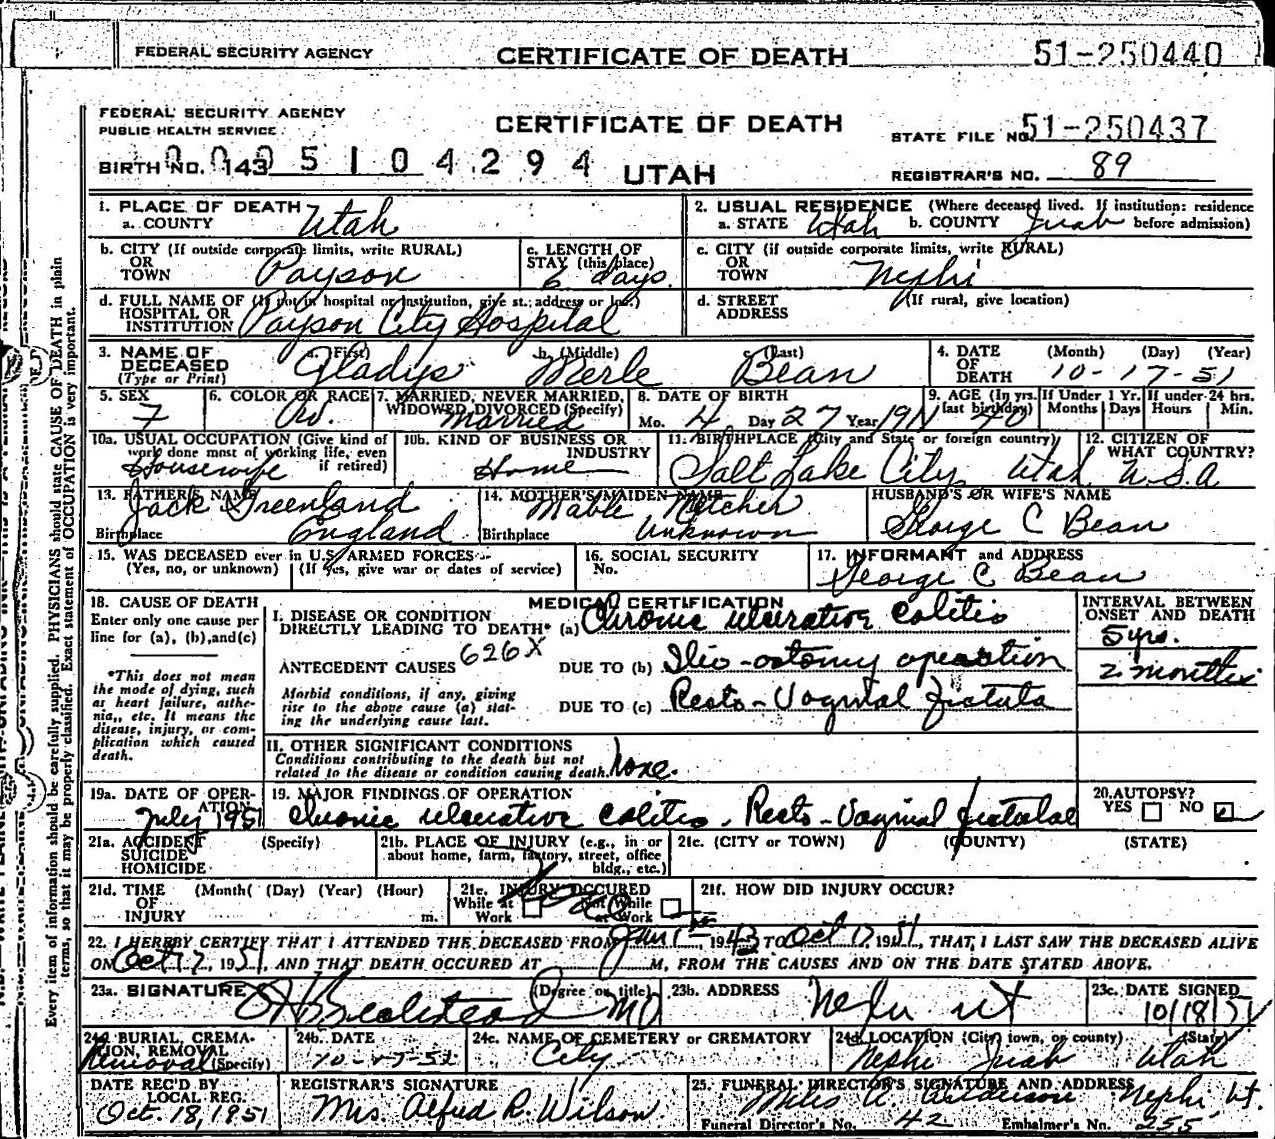 FEDERAL SECURITY AGENCY CERTIFICATE OF DEATH 51-250440
FEDERAL SECURITY AGENCY
PUBLIC HEALTH SERVICE
CERTIFICATE OF DEATH
STATE FILE NO. 51-250437
BIRTH NO. 143 0005104294
UTAH
REGISTRAR'S NO. 89
1. PLACE OF DEATH
a. COUNTY Utah
2. USUAL RESIDENCE (Where deceased lived. If institution: residence before admission)
a. STATE Utah b. COUNTY Juab
b. CITY (If outside corporate limits, write RURAL)
OR
TOWN Payson
c. LENGTH OF
STAY (this place)
6 days.
c. CITY (if outside corporate limits, write RURAL)
OR
TOWN Nephi
d. FULL NAME OF (If not in hospital or institution, give st. address or loc.)
HOSPITAL OR
INSTITUTION Payson City Hospital
d. STREET (If rural, give location)
ADDRESS
3. NAME OF
DECEASED
(Type or Print)
a. (First) b. (Middle) c. (Last)
Gladys Merle Bean
4. DATE (Month) (Day) (Year)
OF
DEATH 10-17-51
5. SEX
F
6. COLOR OR RACE
W.
7. MARRIED, NEVER MARRIED,
WIDOWED, DIVORCED (Specify)
Married
8. DATE OF BIRTH
Mo. 4 Day 27 Year 1911
9. AGE (In yrs. last birthday)
40
If Under 1 Yr.
Months Days
If under 24 hrs.
Hours Min.
10a. USUAL OCCUPATION (Give kind of
work done most of working life, even
if retired)
Housewife
10b. KIND OF BUSINESS OR
INDUSTRY
Home
11. BIRTHPLACE (City and State or foreign country)
Salt Lake City, Utah
12. CITIZEN OF
WHAT COUNTRY?
U.S.A
13. FATHER'S NAME
Jack Greenland
Birthplace England
14. MOTHER'S MAIDEN NAME
Mable
Birthplace Unknown
HUSBAND'S OR WIFE'S NAME
George C Bean
15. WAS DECEASED ever in U.S. ARMED FORCES
(Yes, no, or unknown) (If yes, give war or dates of service)
16. SOCIAL SECURITY
No.
17. INFORMANT and ADDRESS
George C Bean
18. CAUSE OF DEATH
Enter only one cause per
line for (a), (b), and (c)
*This does not mean
the mode of dying, such
as heart failure, asthe-
nia, etc. It means the
disease, injury, or com-
plication which caused
death.
MEDICAL CERTIFICATION
INTERVAL BETWEEN
ONSET AND DEATH
I. DISEASE OR CONDITION
DIRECTLY LEADING TO DEATH* (a) Chronic ulcerative colitis
5 yrs.
ANTECEDENT CAUSES 626X DUE TO (b) Ilio-ostomy operation
2 months
Morbid conditions, if any, giving
rise to the above cause (a) stat-
ing the underlying cause last.
DUE TO (c) Recto-Vaginal fistula
II. OTHER SIGNIFICANT CONDITIONS
Conditions contributing to the death but not
related to the disease or condition causing death. None.
19a. DATE OF OPER-
ATION
July 1951
19. MAJOR FINDINGS OF OPERATION
Chronic ulcerative colitis. Recto-Vaginal fistulae
20. AUTOPSY?
YES NO
21a. ACCIDENT (Specify)
SUICIDE
HOMICIDE
21b. PLACE OF INJURY (e.g., in or
about home, farm, factory, street, office
bldg., etc.)
21c. (CITY or TOWN) (COUNTY) (STATE)
21d. TIME (Month) (Day) (Year) (Hour)
OF
INJURY m.
21e. INJURY OCCURED
While at Work Not While at Work
21f. HOW DID INJURY OCCUR?
22. I HEREBY CERTIFY THAT I ATTENDED THE DECEASED FROM Jan 1st, 1943 TO Oct 17 1951, THAT I LAST SAW THE DECEASED ALIVE
ON Oct 17, 1951, AND THAT DEATH OCCURED AT M, FROM THE CAUSES AND ON THE DATE STATED ABOVE.
23a. SIGNATURE (Degree or title)
MD
23b. ADDRESS
Nephi Ut
23c. DATE SIGNED
10/18/51
24a BURIAL, CREMA-
TION, REMOVAL
(Specify)
Removal
24b. DATE
24c. NAME OF CEMETERY or CREMATORY
City
24d. LOCATION (City, town, or county) (State)
Nephi Juab Utah
DATE REC'D BY
LOCAL REG.
Oct. 18, 1951
REGISTRAR'S SIGNATURE
Mrs. Alfred R. Wilson.
25. FUNERAL DIRECTOR'S SIGNATURE AND ADDRESS
Miles A. Anderson Nephi, Ut.
Funeral Director's No. 42 Embalmer's No. 255
Every item of information should be carefully supplied. PHYSICIANS should state CAUSE OF DEATH in plain
terms, so that it may be properly classified. Exact statement of OCCUPATION is very important.